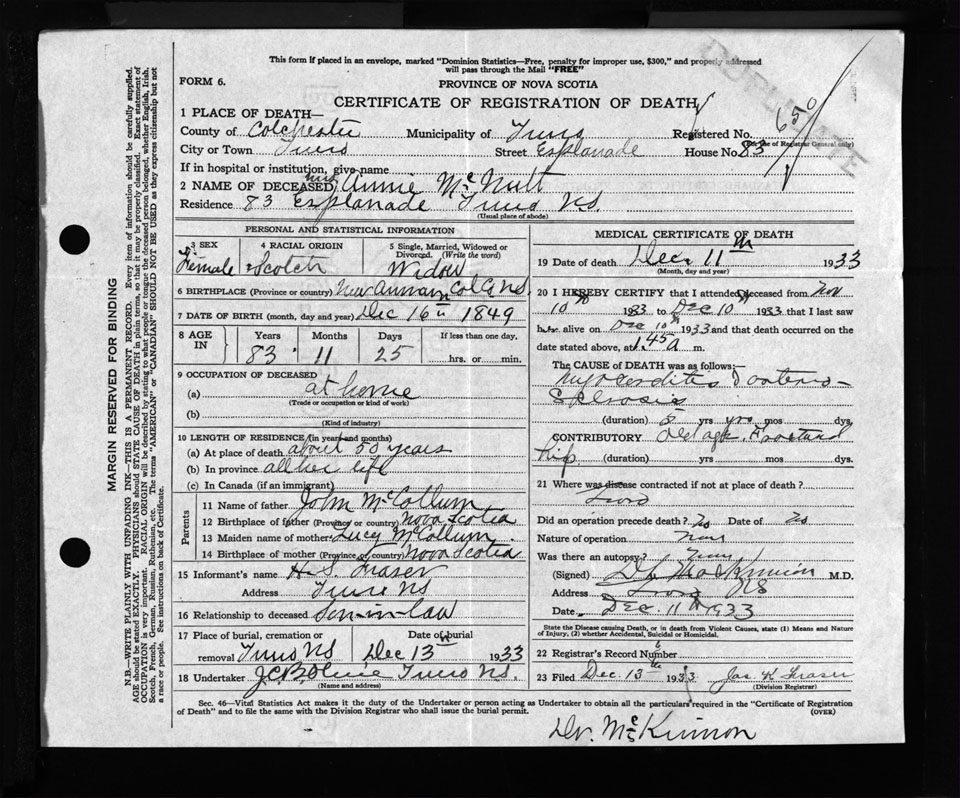 This form if placed in an envelope, marked "Dominion Statistics—Free, penalty for improper use, $300," and properly addressed
will pass through the Mail "FREE"
FORM 6.
PROVINCE OF NOVA SCOTIA
CERTIFICATE OF REGISTRATION OF DEATH
DUPLICATE
650
1 PLACE OF DEATH—
County of Colchester Municipality of Truro Registered No.
(For use of Registrar General only)
City or Town Truro Street Esplanade House No. 83
If in hospital or institution, give name
2 NAME OF DECEASED Mrs Annie McNutt
Residence 83 Esplanade Truro N.S.
(Usual place of abode)
PERSONAL AND STATISTICAL INFORMATION
3 SEX
Female
4 RACIAL ORIGIN
Scotch
5 Single, Married, Widowed or
Divorced. (Write the word)
Widow
6 BIRTHPLACE (Province or country) New Annan Col Co N.S.
7 DATE OF BIRTH (month, day and year) Dec 16th 1849
8 AGE
IN
Years
83
Months
11
Days
25
If less than one day,
hrs. or min.
9 OCCUPATION OF DECEASED
(a) at home
(Trade or occupation or kind of work)
(b)
(Kind of industry)
10 LENGTH OF RESIDENCE (in years and months)
(a) At place of death about 50 years
(b) In province all her life
(c) In Canada (if an immigrant)
Parents
11 Name of father John McCollum
12 Birthplace of father (Province or country) Nova Scotia
13 Maiden name of mother Lucy McCollum
14 Birthplace of mother (Province or country) Nova Scotia
15 Informant's name H. S. Fraser
Address Truro NS
16 Relationship to deceased Son-in-law
17 Place of burial, cremation or
removal Truro NS
Date of burial
Dec 13th 1933
18 Undertaker Truro N.S.
(Name and address)
MEDICAL CERTIFICATE OF DEATH
19 Date of death Dec 11th 1933
(Month, day and year)
20 I HEREBY CERTIFY that I attended deceased from Nov
10th 1933 to Dec 10th 1933 that I last saw
her alive on Dec 10th 1933 and that death occurred on
date stated above, at 1.45 A m.
The CAUSE of DEATH was as follows:—
Myocarditis & arterio-
sclerosis
(duration) 5 yrs mos dys.
CONTRIBUTORY Old age. Fractured
hip (duration) yrs mos dys.
21 Where was disease contracted if not at place of death?
Truro
Did an operation precede death? No Date of No
Nature of operation None
Was there an autopsy? None
(Signed) MacKinnon M.D.
Address Truro NS
Date Dec. 11th 1933
State the Disease causing Death, or in death from Violent Causes, state (1) Means and Nature
of Injury, (2) whether Accidental, Suicidal or Homicidal.
22 Registrar's Record Number
23 Filed Dec. 13th 1933 Jas. H. Fraser
(Division Registrar)
Sec. 46—Vital Statistics Act makes it the duty of the Undertaker or person acting as Undertaker to obtain all the particulars required in the "Certificate of Registration
of Death" and to file the same with the Division Registrar who shall issue the burial permit.
(OVER)
Dr. McKinnon
MARGIN RESERVED FOR BINDING
N.B.—WRITE PLAINLY WITH UNFADING INK—THIS IS A PERMANENT RECORD. Every item of information should be carefully supplied.
AGE should be stated EXACTLY. PHYSICIANS should STATE CAUSE OF DEATH in plain terms, so that it may be properly classified. Exact statement of
OCCUPATION is very important. RACIAL ORIGIN will be described by stating to what people or tongue the deceased person belonged, whether English, Irish,
Scotch, French, German, Russian, Ruthenian, etc. The terms "AMERICAN" or "CANADIAN" SHOULD NOT BE USED as they express citizenship but not
a race or people. See instructions on back of Certificate.